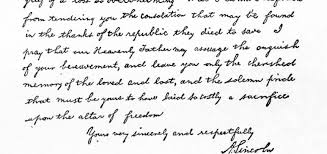 from tendering you the consolation that may be found
in the thanks of the republic they died to save. I
pray that our Heavenly Father may assuage the anguish
of your bereavement, and leave you only the cherished
memory of the loved and lost, and the solemn pride
that must be yours to have laid so costly a sacrifice
upon the altar of freedom
Yours very sincerely and respectfully
A. Lincoln